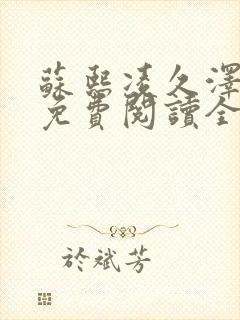 蘇熙凌久澤
免費閱讀全
於斌芳